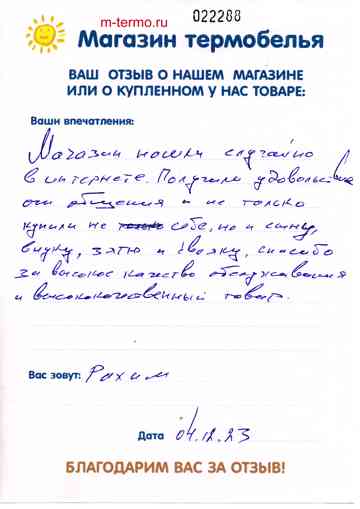 022288
m-termo.ru
Магазин термобелья
ВАШ ОТЗЫВ О НАШЕМ МАГАЗИНЕ
ИЛИ О КУПЛЕННОМ У НАС ТОВАРЕ:
Ваши впечатления:
Магазин нашли случайно
в интернете. Получили удовольствие
от общения и не только
купили не только себе, но и сыну,
внуку, зятю и свояку, спасибо
за высокое качество обслуживания
и высококачественный товар.
Вас зовут: Рахим
Дата 04.12.23
БЛАГОДАРИМ ВАС ЗА ОТЗЫВ!